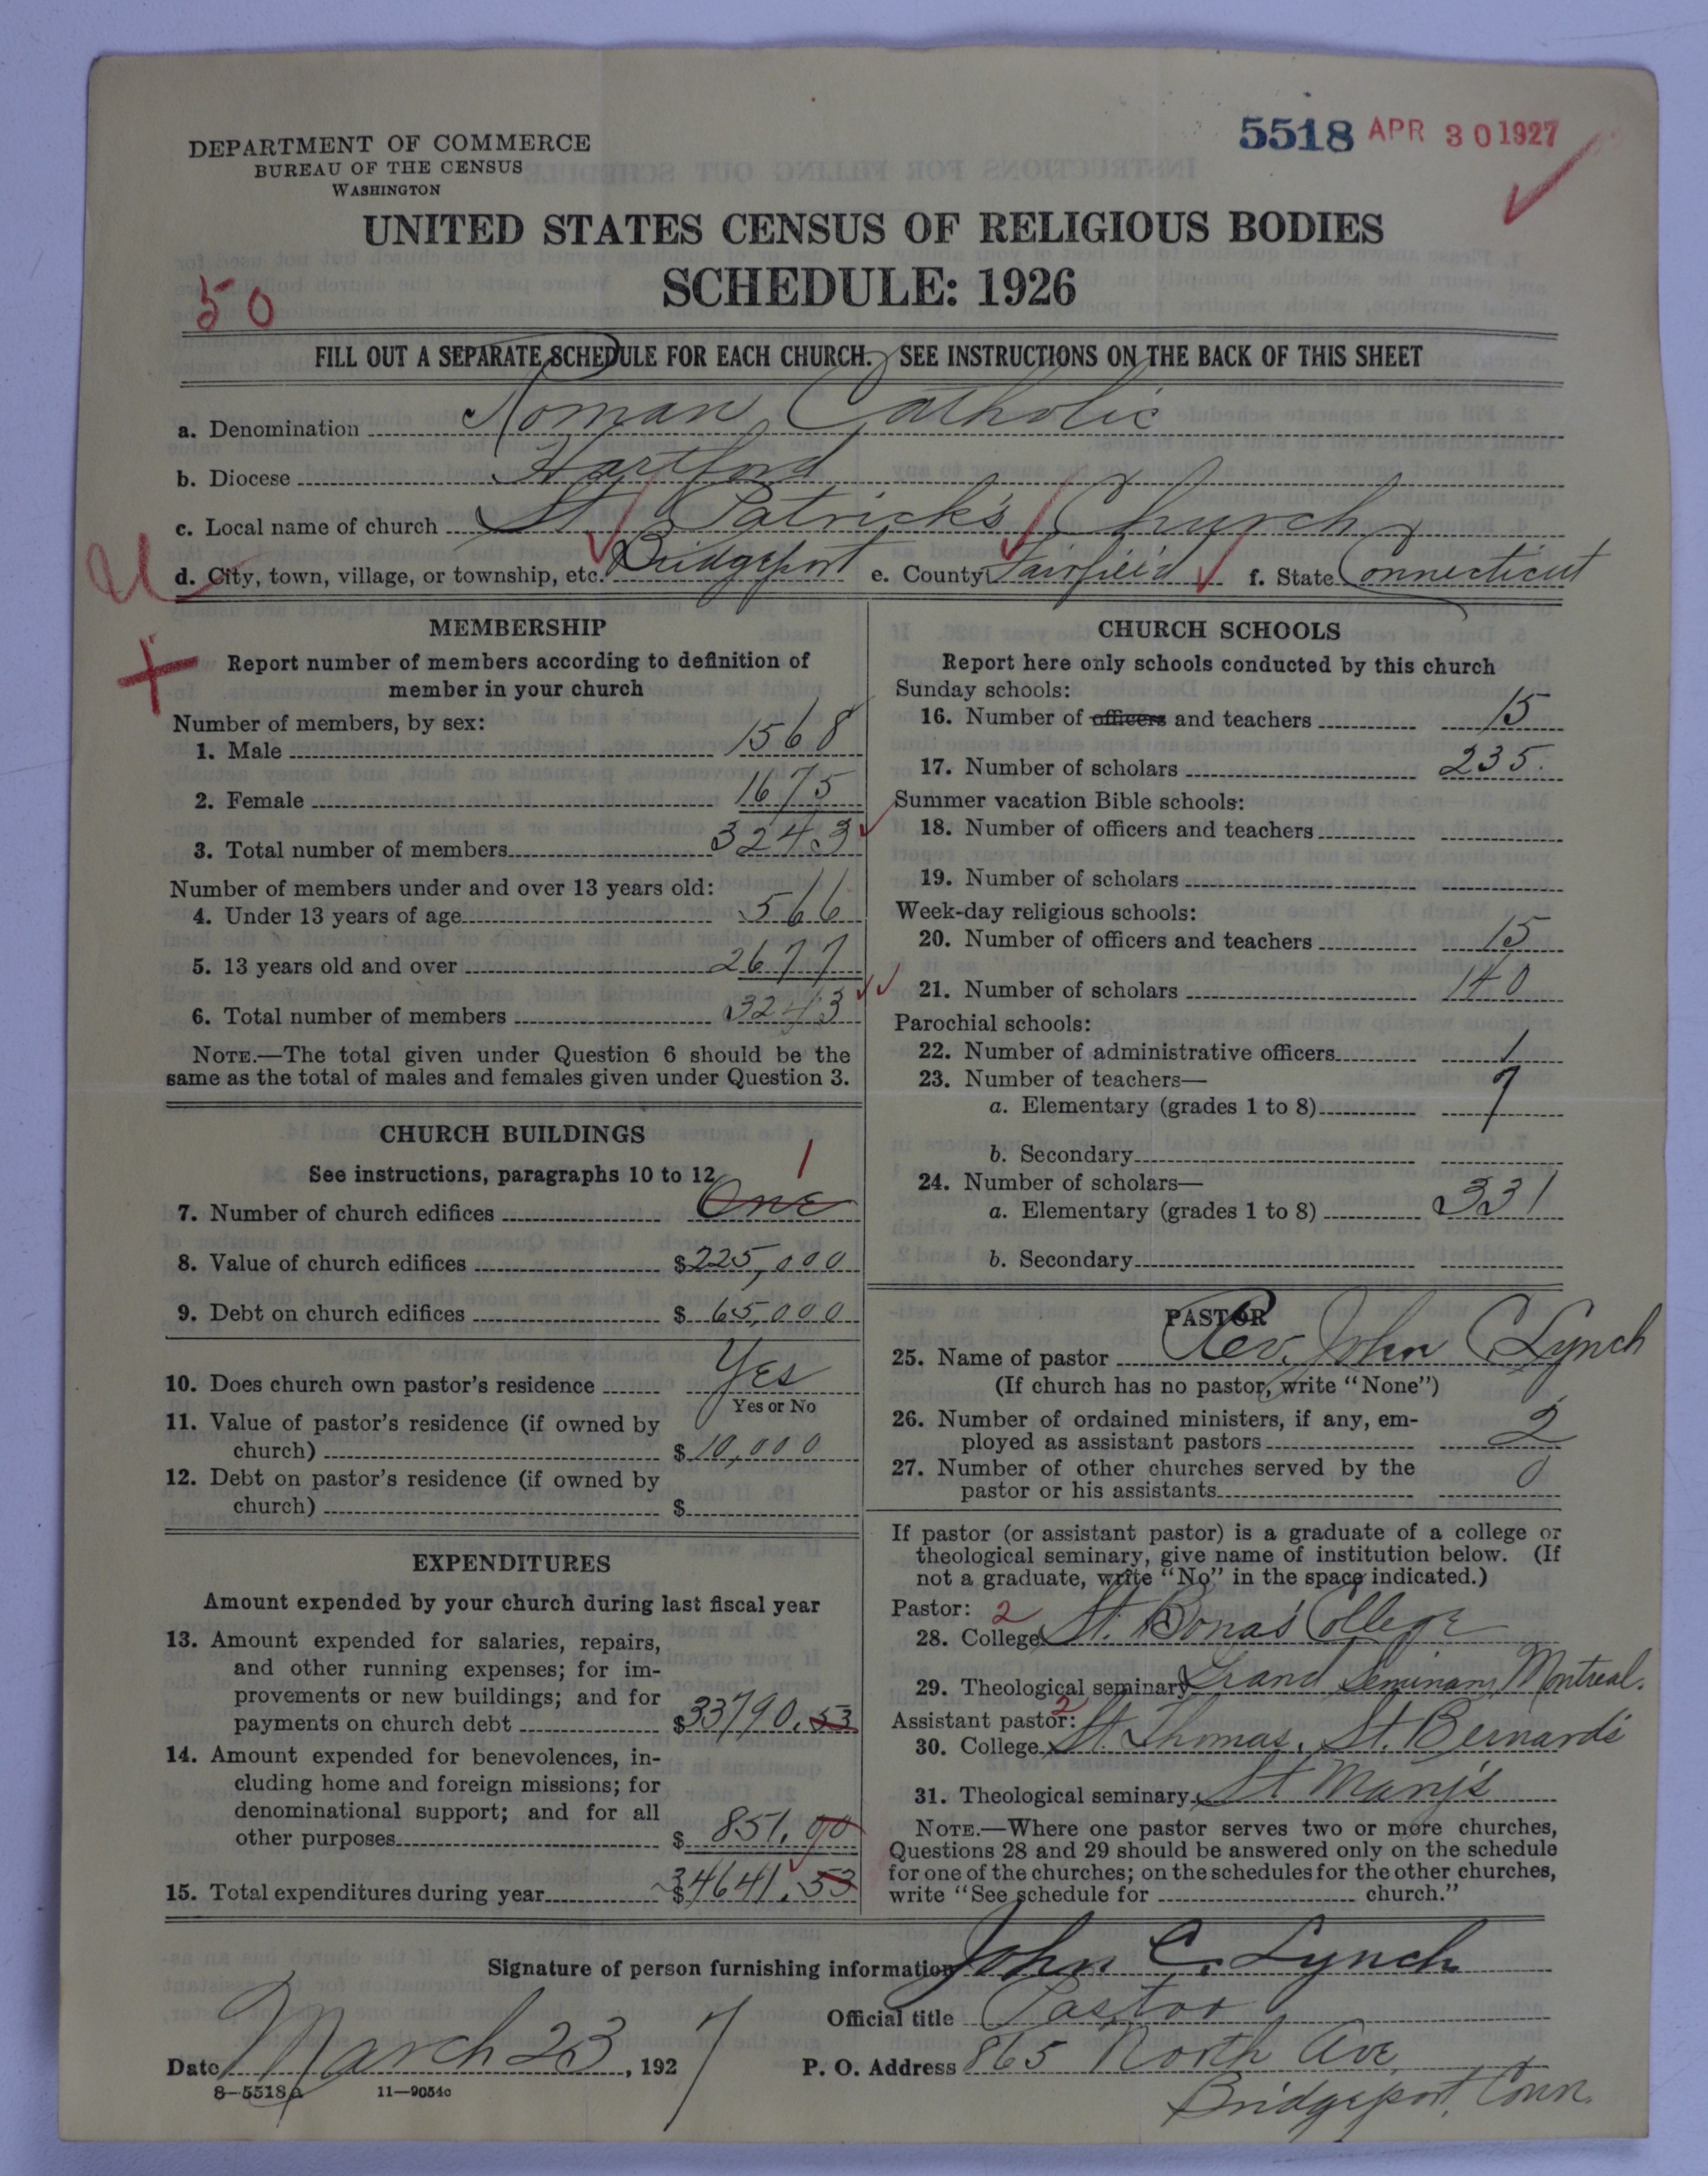 5518 APR 30 1927
DEPARTMENT OF COMMERCE
BUREAU OF THE CENSUS
WASHINGTON
UNITED STATES CENSUS OF RELIGIOUS BODIES
SCHEDULE: 1926
50
FILL OUT A SEPARATE SCHEDULE FOR EACH CHURCH. SEE INSTRUCTIONS ON THE BACK OF THIS SHEET
a. Denomination Roman Catholic
b. Diocese Hartford
c. Local name of church St Patrick's Church
d. City, town, village, or township, etc. Bridgeport e. County Fairfield f. State Connecticut
MEMBERSHIP
Report number of members according to definition of
member in your church
Number of members, by sex:
1. Male 1568
2. Female 1675
3. Total number of members 3243
Number of members under and over 13 years old:
4. Under 13 years of age 566
5. 13 years old and over 2677
6. Total number of members 3243
NOTE.—The total given under Question 6 should be the
same as the total of males and females given under Question 3.
CHURCH BUILDINGS
See instructions, paragraphs 10 to 12
1
7. Number of church edifices One
8. Value of church edifices $225,000
9. Debt on church edifices $ 65,000
10. Does church own pastor's residence Yes
Yes or No
11. Value of pastor's residence (if owned by
church) $10,000
12. Debt on pastor's residence (if owned by
church) $
EXPENDITURES
Amount expended by your church during last fiscal year
13. Amount expended for salaries, repairs,
and other running expenses; for im-
provements or new buildings; and for
payments on church debt $33790.53
14. Amount expended for benevolences, in-
cluding home and foreign missions; for
denominational support; and for all
other purposes $ 851.00
15. Total expenditures during year $34641.53
CHURCH SCHOOLS
Report here only schools conducted by this church
Sunday schools:
16. Number of officers and teachers 15
17. Number of scholars 235.
Summer vacation Bible schools:
18. Number of officers and teachers
19. Number of scholars
Week-day religious schools:
20. Number of officers and teachers 15
21. Number of scholars 140
Parochial schools:
22. Number of administrative officers 1
23. Number of teachers—
a. Elementary (grades 1 to 8) 7
b. Secondary
24. Number of scholars—
a. Elementary (grades 1 to 8) 331
b. Secondary
PASTOR
25. Name of pastor Rev. John C Lynch
(If church has no pastor, write "None")
26. Number of ordained ministers, if any, em-
ployed as assistant pastors 2
27. Number of other churches served by the
pastor or his assistants 0
If pastor (or assistant pastor) is a graduate of a college or
theological seminary, give name of institution below. (If
not a graduate, write "No" in the space indicated.)
Pastor: 2
28. College St. Bona's College
29. Theological seminary Grand Seminary Montreal.
Assistant pastor: 2
30. College St. Thomas, St. Bernard's
31. Theological seminary St Mary's
NOTE.—Where one pastor serves two or more churches,
Questions 28 and 29 should be answered only on the schedule
for one of the churches; on the schedules for the other churches,
write "See schedule for church."
Signature of person furnishing information John C. Lynch
Official title Pastor
Date March 23, 1927 P. O. Address 865 North Ave
Bridgeport, Conn.
8—5518a 11—9054c